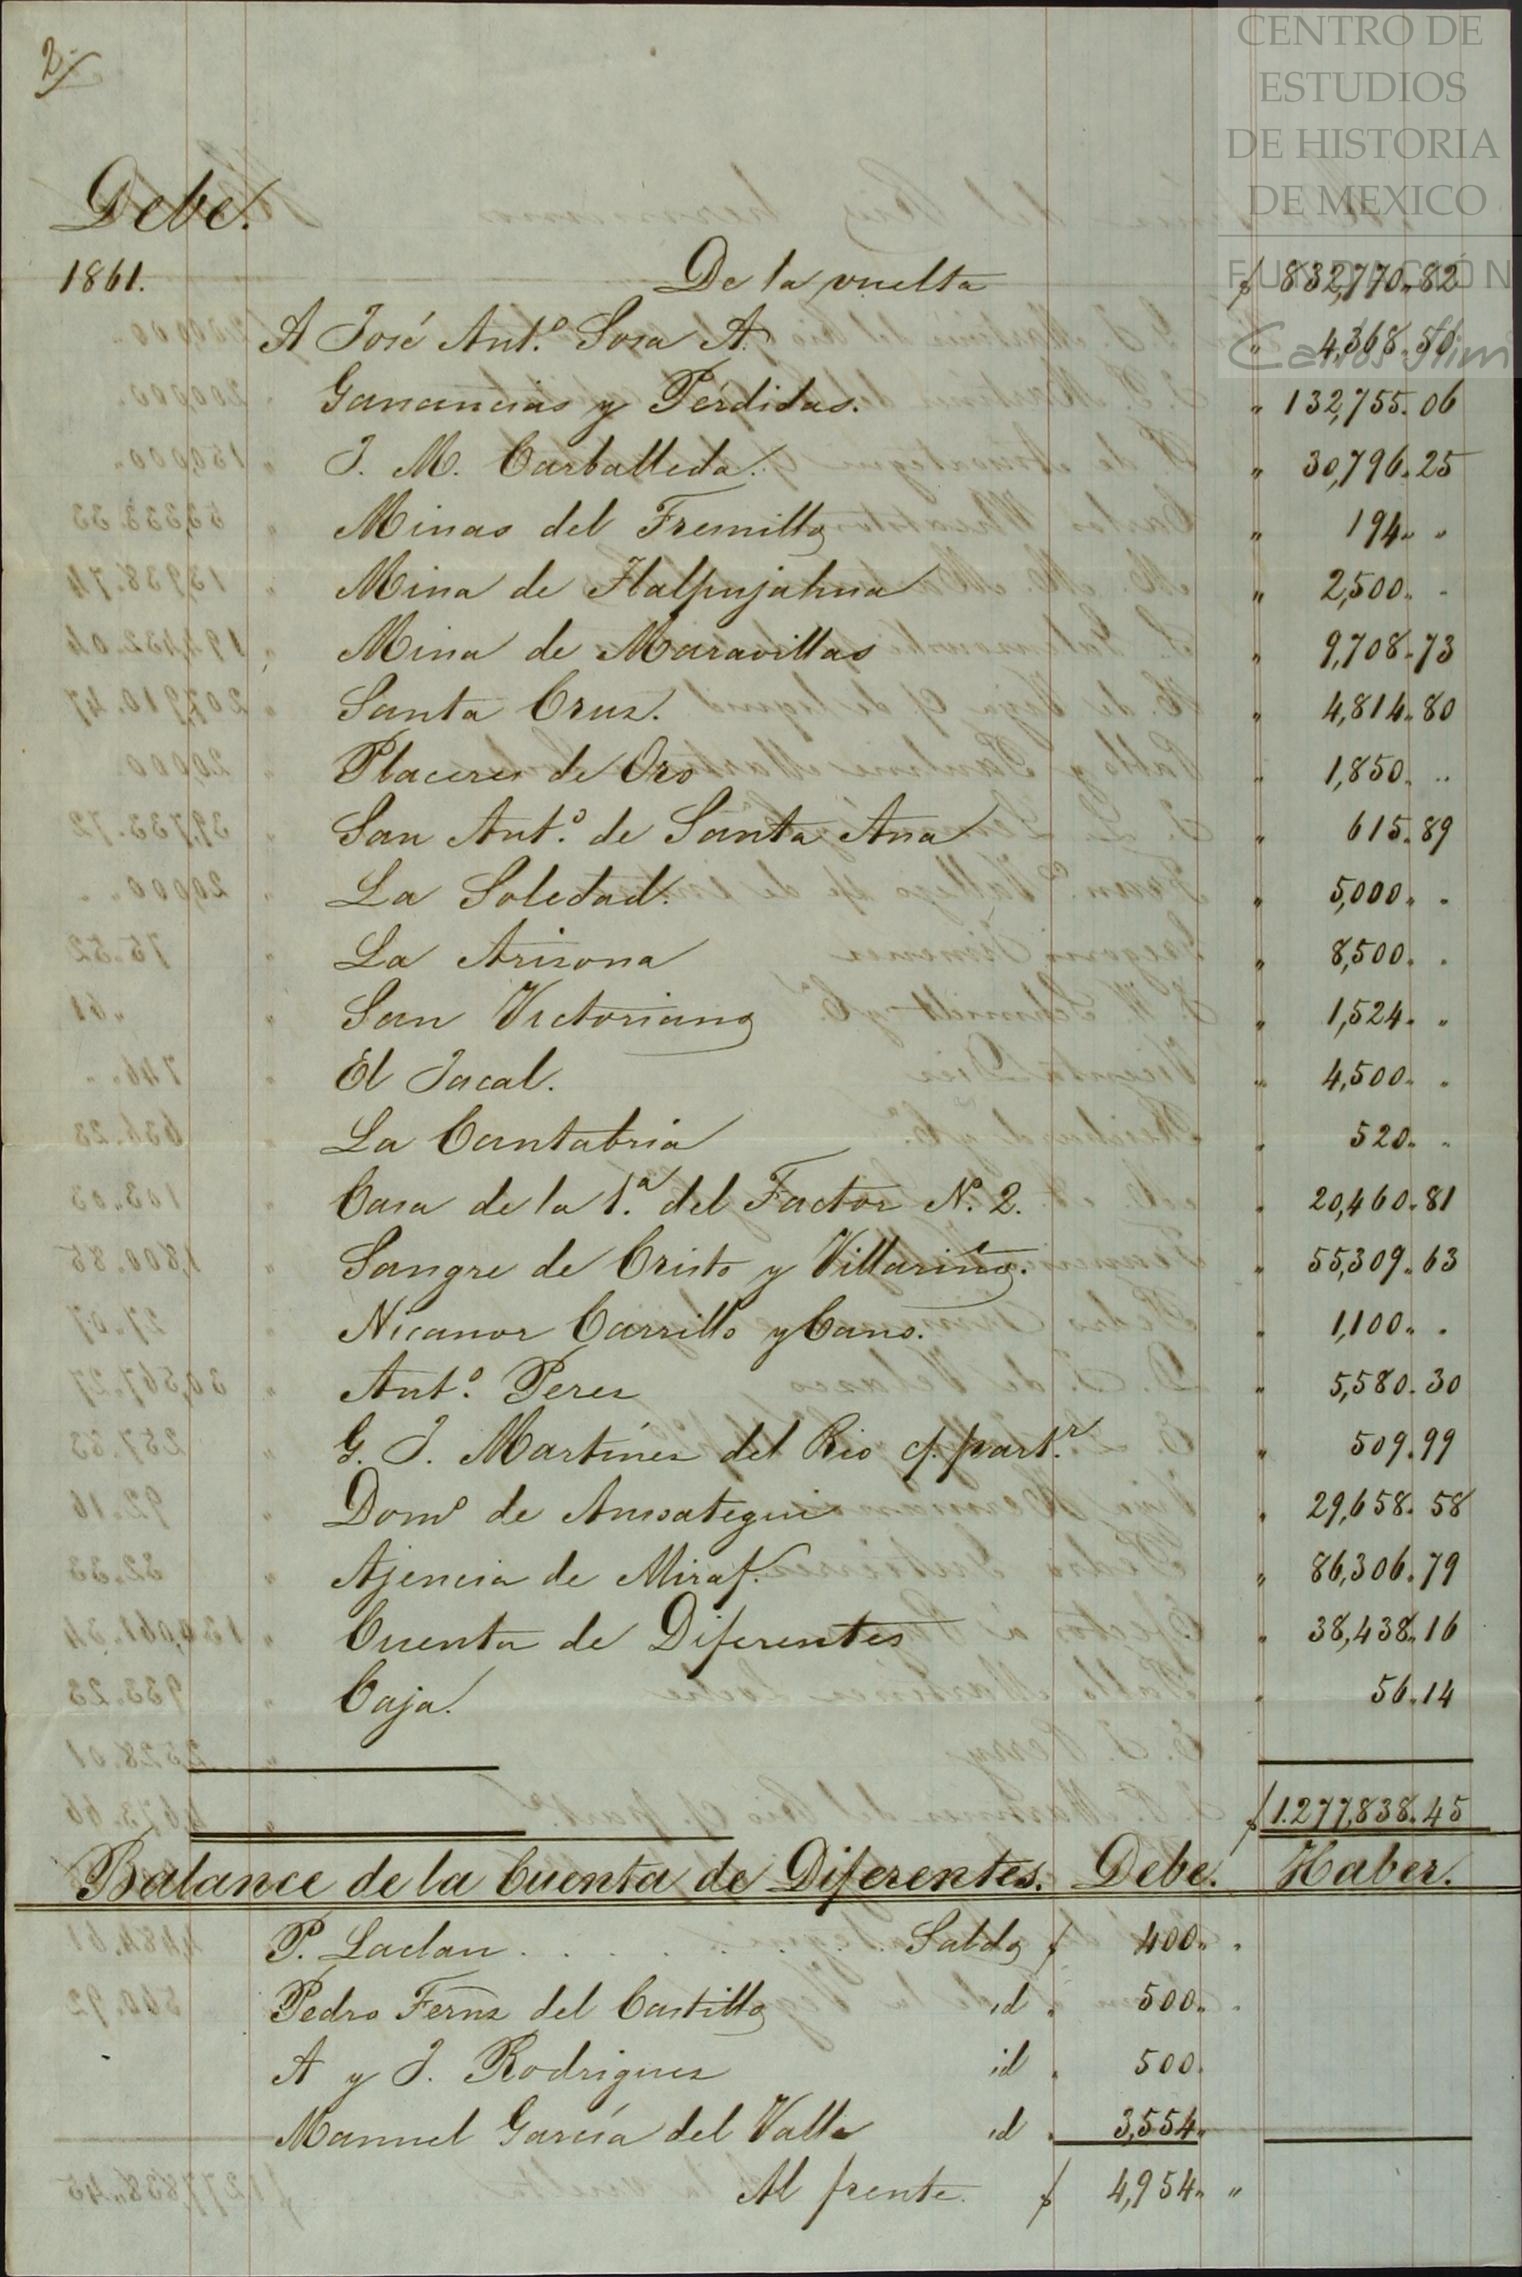 2
CENTRO DE
ESTUDIOS
DE HISTORIA
DE MEXICO
FUNDACIÓN
Carlos Slim
Debe.
1861. De la vuelta $ 832,770.82
A José Ant.º Sosa A. " 4,368.50
Ganancias y Pérdidas. " 132,755.06
J. M. Carballeda. " 30,796.25
Minas del Fresnillo " 194. "
Mina de Tlalpujahua " 2,500. "
Mina de Maravillas " 9,708.73
Santa Cruz. " 4,814.80
Placeres de Oro " 1,850. "
San Ant.º de Santa Ana " 615.89
La Soledad. " 5,000. "
La Arizona " 8,500. "
San Victoriano " 1,524. "
El Jacal. " 4,500. "
La Cantabria " 520. "
Casa de la 1.ª del Factor N.º 2. " 20,460.81
Sangre de Cristo y Villarino. " 55,309.63
Nicanor Carrillo y Cano. " 1,100. "
Ant.º Perez " 5,580.30
G. J. Martínez del Rio c/. part.r " 509.99
Dom.º de Ansoategui " 29,658.58
Ajencia de Miraf. " 86,306.79
Cuenta de Diferentes " 38,438.16
Caja. " 56.14
$ 1.277,838.45
Balance de la Cuenta de Diferentes. Debe. Haber.
P. Laclau . . . . . . . Saldo $ 400. "
Pedro Fernz del Castillo id " 500. "
A y J. Rodriguez id " 500.
Manuel García del Valle id " 3,554.
Al frente. $ 4,954. "